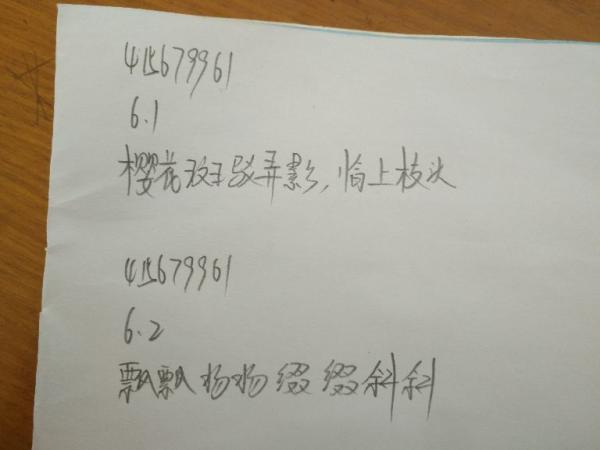 415679961
6.1
樱花斑驳弄影，悄上枝头
415679961
6.2
飘飘扬扬缀缀斜斜